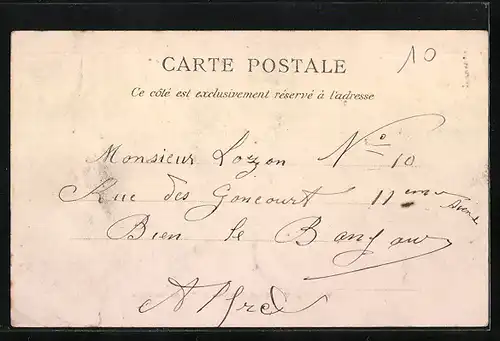 CARTE POSTALE
10
Ce côté est exclusivement réservé à l'adresse
Monsieur Lozzon No 10
Rue des Goncourt 11eme
Bien le Bonjour
Alfred